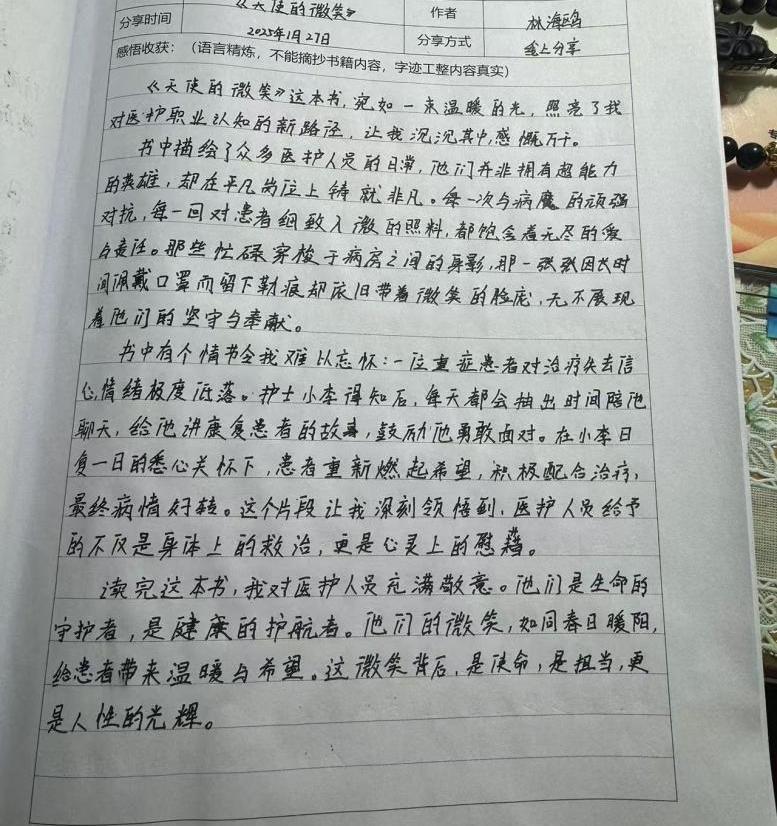 《天使的微笑》 作者 林海鸥
分享时间 2025年1月27日 分享方式 线上分享
感悟收获：（语言精炼，不能摘抄书籍内容，字迹工整内容真实）
《天使的微笑》这本书，宛如一束温暖的光，照亮了我
对医护职业认知的新路径，让我沉沉其中，感慨万千。
书中描绘了众多医护人员的日常，他们并非拥有超能力
的英雄，却在平凡岗位上铸就非凡。每一次与病魔的顽强
对抗，每一回对患者细致入微的照料，都饱含着无尽的爱
与责任。那些忙碌穿梭于病房之间的身影，那一张张因长时
间佩戴口罩而留下勒痕却依旧带着微笑的脸庞，无不展现
着他们的坚守与奉献。
书中有个情节令我难以忘怀：一位重症患者对治疗失去信
心，情绪极度低落。护士小李得知后，每天都会抽出时间陪他
聊天，给他讲康复患者的故事，鼓励他勇敢面对。在小李日
复一日的悉心关怀下，患者重新燃起希望，积极配合治疗，
最终病情好转。这个片段让我深刻领悟到，医护人员给予
的不仅是身体上的救治，更是心灵上的慰藉。
读完这本书，我对医护人员充满敬意。他们是生命的
守护者，是健康的护航者。他们的微笑，如同春日暖阳，
给患者带来温暖与希望。这微笑背后，是使命，是担当，更
是人性的光辉。